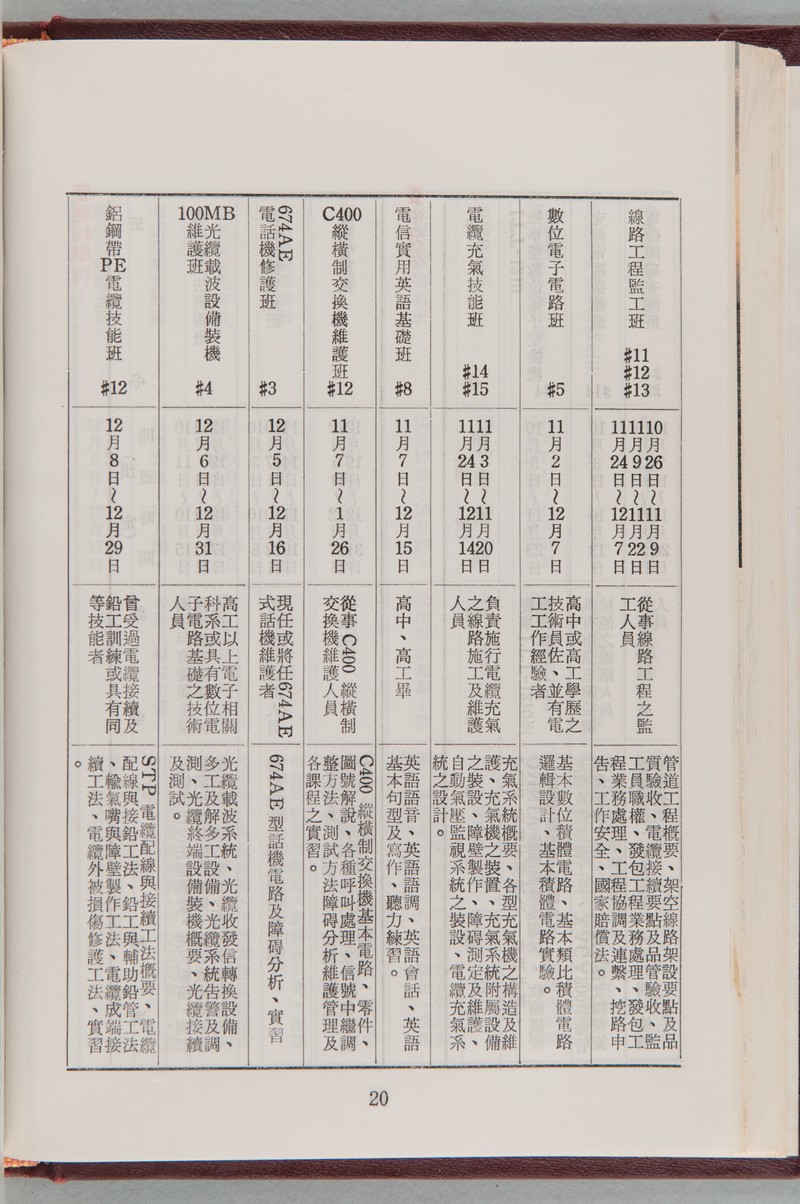 線路工程監工班 #11 #12 #13
10月26日～11月9日
11月9日～11月22日
11月24日～12月7日
從事線路工程之監
工人員
管道工程概要、架空線路架設要點及品
質驗收、電纜接續要點及品管驗收、監
工員職權、發包工程業務處理、發包工
程業務處理、工程協調及連繫、挖路申
告、工作安全、國家賠償法。
數位電子電路班 #5
11月2日～12月7日
高中或高工學歷之
技術員佐、並有電
工工作經驗者
基本數位積體電路、基本類比積體電路
邏輯設計、基本積體電路實驗。
電纜充氣技能班 #14 #15
11月3日～11月20日
11月24日～12月14日
負責施行電纜充氣
之線路施工及維護
人員
充氣系統概要、各型充氣機之構造及維
護、充氣機之裝置、充氣系統附屬設備
之裝設、障壁製作、障碍測定及維護、
自動氣壓監視系統之裝設、電纜充氣系
統之設計。
電信實用英語基礎班 #8
11月7日～12月15日
高中、高工畢
英語語音、英語語調、英語會話、英語
基本句型及寫作、聽力練習。
C400縱橫制交換機維護班 #12
11月7日～1月26日
從事C400縱橫制
交換機維護人員
C400縱橫制交換機基本電路、零件、
圖號解說、各種呼叫處理、信號中繼調
整方法、測試方法障碍分析維護管理及
各課程之實習。
674AE
電話機修護班 #3
12月5日～12月16日
現任或將任674AE
式話機維護者
674AE型話機電路及障碍分析、實習
100MB光纜載波設備裝機
維護班 #4
12月6日～12月31日
高工以上電子相關
科系或具有數位電
子電路基礎之技術
人員
光纜載波系統、光纜收發信轉換設備、
多工及解多工設備、光纜系統告警及調
測、光纜終端設備裝機概要、光纜接續
及測試。
鋁鋼帶PE電纜技能班 #12
12月8日～12月29日
曾受過電纜接續及
鉛工訓練或具有同
等技能者
STP電纜配線與接續工法概要、電纜
配線與接鉛工法、鉛工與輔助鉛管工法
、輸氣嘴與障壁製作工法、電纜成端接
續工法、電纜外被損傷修護工法、實習
。
20